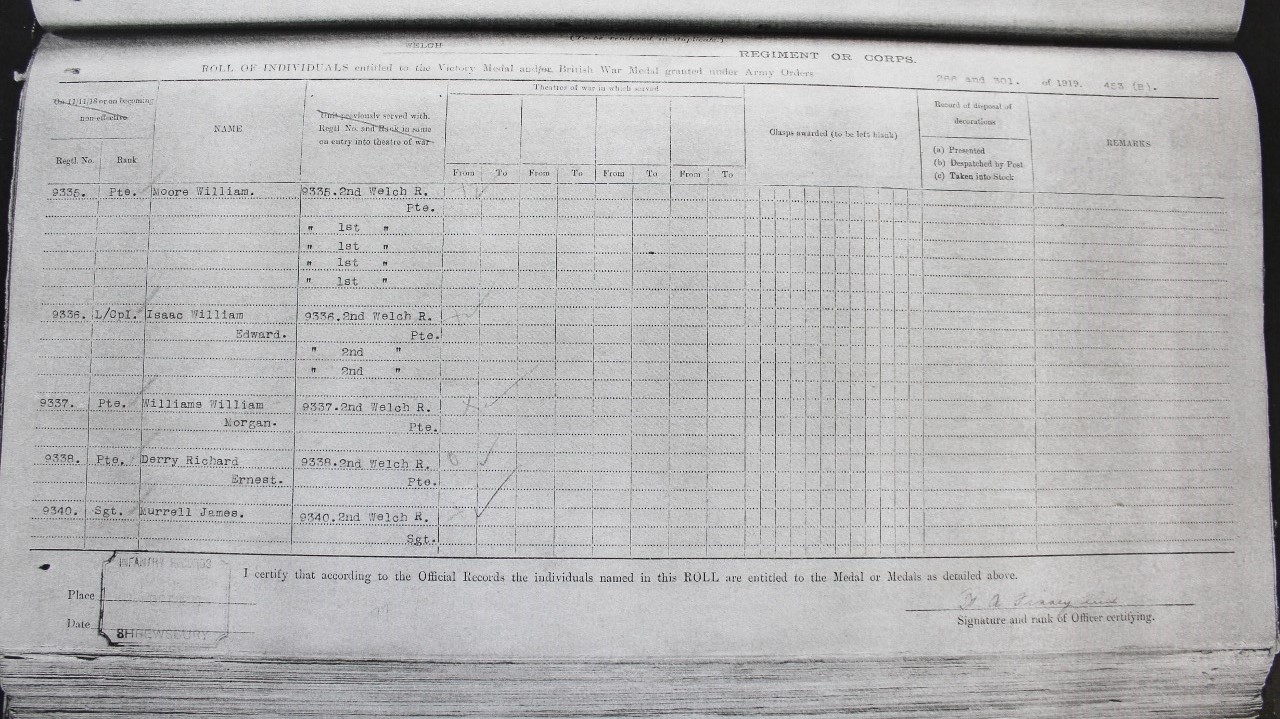 (To be rendered in duplicate)
WELCH REGIMENT OR CORPS.
ROLL OF INDIVIDUALS entitled to the Victory Medal and/or British War Medal granted under Army Orders 266 and 301. of 1919. 453 (B).
On 11/11/18 or on becoming non-effective
Regtl. No. Rank
NAME
Unit previously served with.
Regtl No. and Rank in same
on entry into theatre of war
Theatres of war in which served
From To From To From To From To
Clasps awarded (to be left blank)
Record of disposal of
decorations
(a) Presented
(b) Despatched by Post
(c) Taken into Stock
REMARKS
9335. Pte. Moore William. 9335.2nd Welch R.
Pte.
" 1st "
" 1st "
" 1st "
" 1st "
9336. L/Cpl. Isaac William 9336.2nd Welch R.
Edward. Pte.
" 2nd "
" 2nd "
9337. Pte. Williams William 9337.2nd Welch R.
Morgan. Pte.
9338. Pte. Derry Richard 9338.2nd Welch R.
Ernest. Pte.
9340. Sgt. Murrell James. 9340.2nd Welch R.
Sgt.
INFANTRY RECORDS
I certify that according to the Official Records the individuals named in this ROLL are entitled to the Medal or Medals as detailed above.
Place
Date
SHREWSBURY
Signature and rank of Officer certifying.